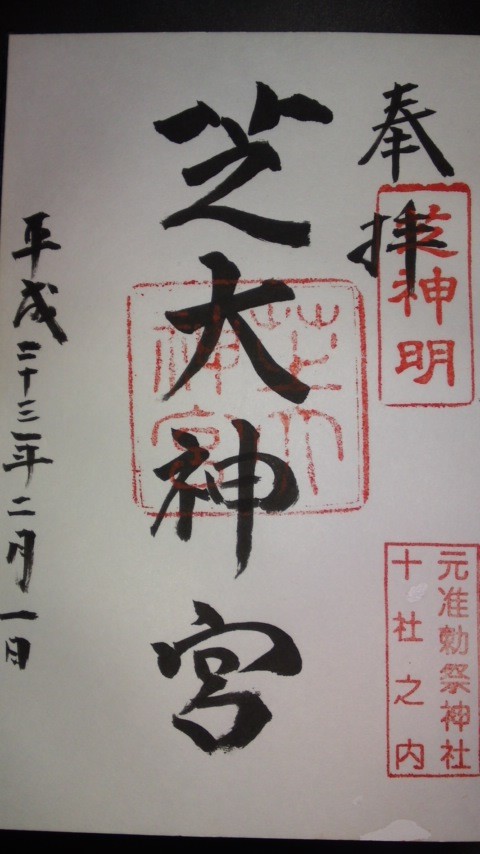 奉拝
芝神明
元准勅祭神社
十社之内
芝大神宮
芝大神宮
平成二十三年二月一日